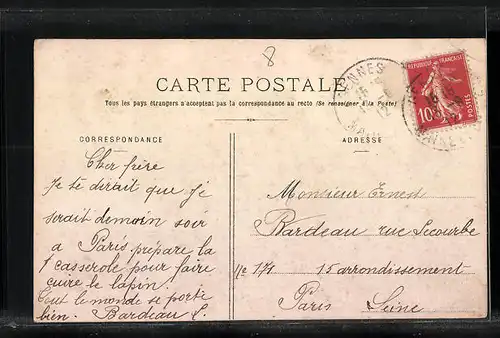 8
CARTE POSTALE
Tous les pays étrangers n'acceptent pas la correspondance au recto (Se renseigner à la Poste)
CORRESPONDANCE
ADRESSE
RÉPUBLIQUE FRANÇAISE
10
POSTES
Cher frère
Je te dirait que je
serait demain soir
a Paris prépare la
casserole pour faire
cuire le lapin.
Tout le monde se porte
bien. Bardeau L.
Monsieur Ernest
Bardeau rue Lecourbe
No 171 15 arrondissement
Paris Seine